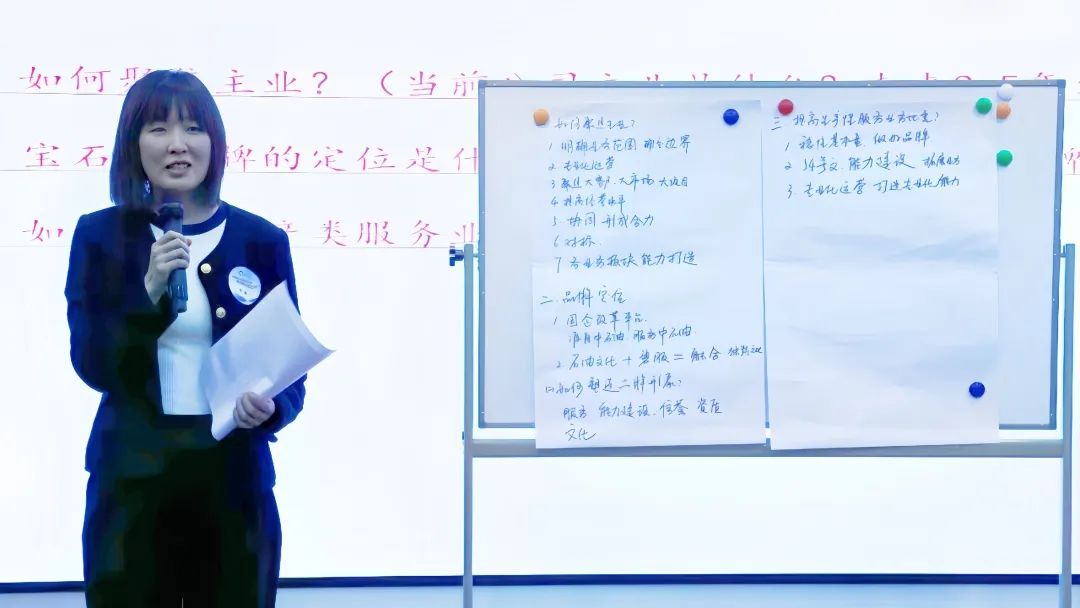 如何聚 主业？（当前
宝石 牌的定位是什
如 类服务业
一 如何聚焦主业？
1 明确业务范围 明确边界
2. 专业化运营
3 聚焦大客户、大市场 大项目
4 提高经营水平
5 协同 形成合力
6 对标.
7 各业务板块 能力打造
二. 品牌定位
1 国企改革平台.
源自中石油.服务中石油
2. 石油文化 + 融合
如何塑造 品牌形象？
服务 能力建设.信誉 资质
文化
三 提高 服务业务 ？
1 做好品牌
2 14号文.能力建设
3. 专业化运营 打造专业化能力